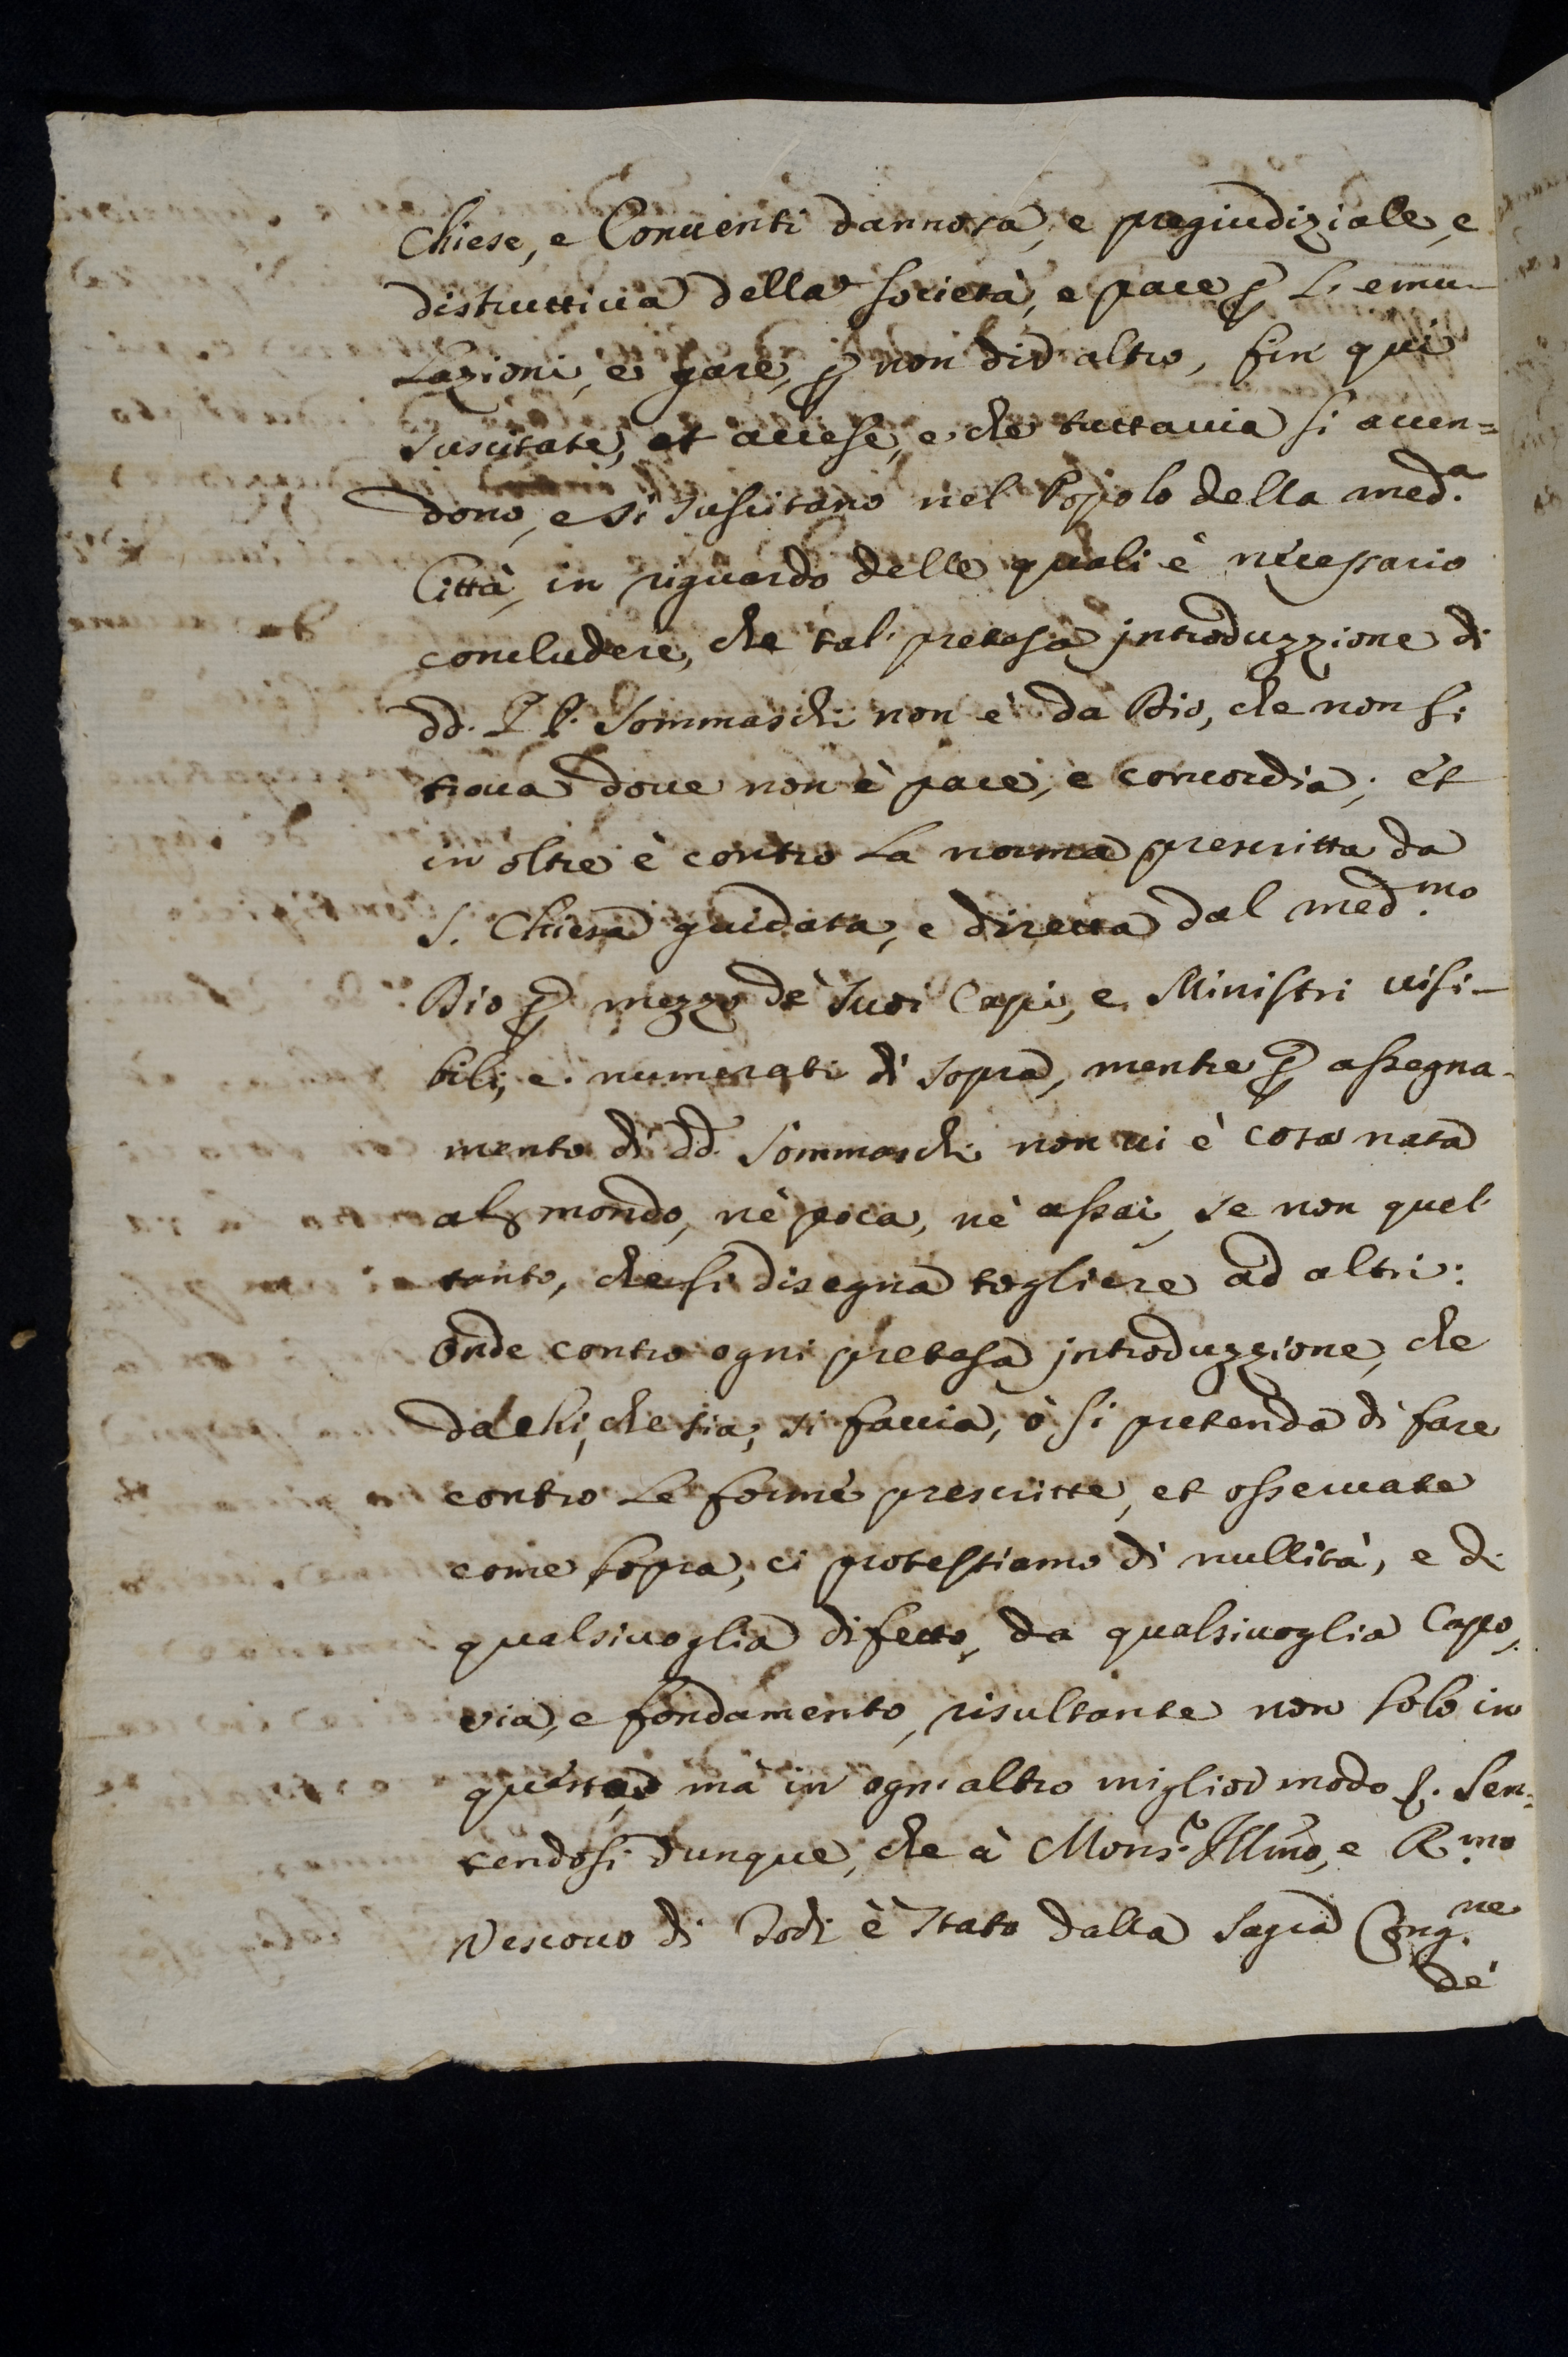 Chiese, e Conuenti dannosa, e pregiudiziale, e
distruttiua della società, e pace ꝑ L'emu-
lazioni, e gare, ꝑ non dir altro, fin qui
suscitate, et accese, e che tuttauia si accen=
dono, e si suscitano nel Popolo della med.ª
Città, in riguardo delle quali è necessario
concludere, che tal' pretesa introduzzione di
dd. PP. Sommaschi non è da Dio, che non si
troua doue non è pace, e concordia; et
in oltre è contro la norma prescritta da
S. Chiesa guidata, e diretta dal med.mo
Dio ꝑ mezzo de' suoi Capi, e Ministri uisi-
bili, e numerati di sopra, mentre ꝑ assegna-
mento di dd. Sommaschi non ui è cosa nata
al mondo, nè poca, nè assai, se non quel
tanto, che si disegna togliere ad altri:
Onde contro ogni pretesa introduzzione, che
da chi, che sia, si faccia, ò si pretenda di fare
contro le forme prescritte, et osseruate
come sopra, ci protestiamo di nullità, e di
qualsiuoglia difetto, da qualsiuoglia Capo,
uia, e fondamento, risultante non solo in
questo mà in ogni altro miglior modo &. Sen=
tendosi dunque, che à Mons.r Ill̃mo, e R.mo
Vescouo di Todi è stato dalla Sagra Cong.ne
de'